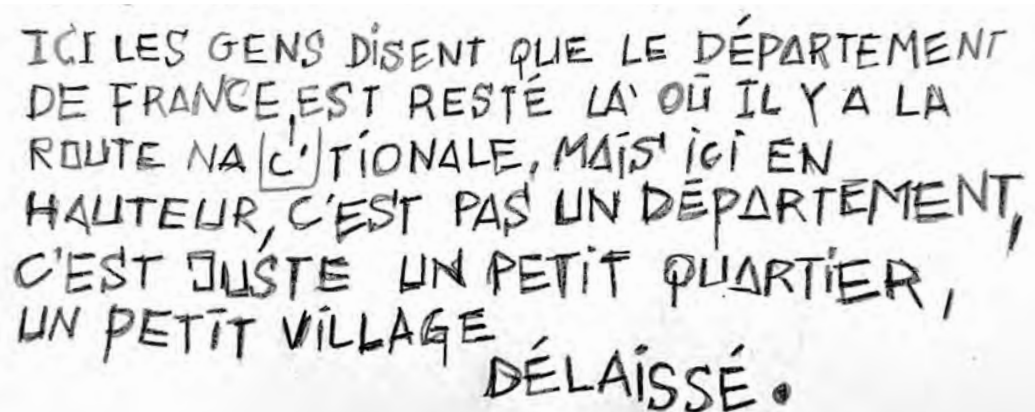 ICI LES GENS DISENT QUE LE DÉPARTEMENT
DE FRANCE, EST RESTÉ LÀ OÙ IL Y A LA
ROUTE NA C' TIONALE, MAIS ICI EN
HAUTEUR, C'EST PAS UN DÉPARTEMENT,
C'EST JUSTE UN PETIT QUARTIER,
UN PETIT VILLAGE
DÉLAISSÉ.